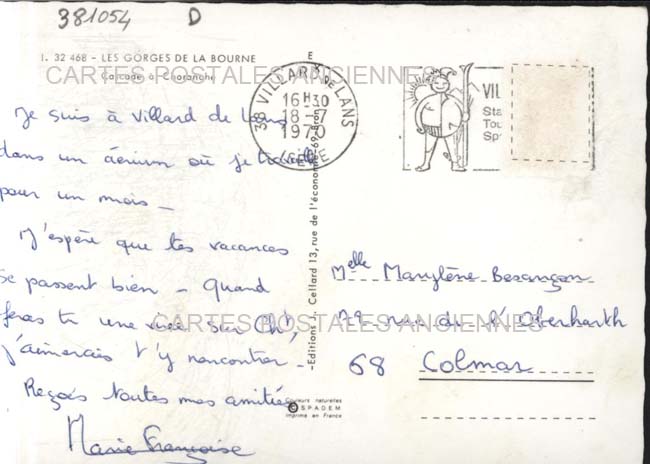 381054 D
I. 32 468 - LES GORGES DE LA BOURNE
Cascade à Choranche
CARTES POSTALES ANCIENNES
Je suis à Villard de Lans
dans un aérium où je travaille
pour un mois -
J'espère que tes vacances
se passent bien - Quand
feras tu une virée sur Ch',
j'aimerais t'y rencontrer -
Reçois toutes mes amitiés
Marie Françoise
E
38 VILLARD DE LANS
16H30
18-7
1970
ISERE
VIL
Sta
Tou
Sp
-Editions J. Cellard 13, rue de l'économie-69-Bron
Melle Marylène Besançon
rue du Oberharth
CARTES POSTALES ANCIENNES
68 Colmar
Couleurs naturelles
© SPADEM
Imprimé en France